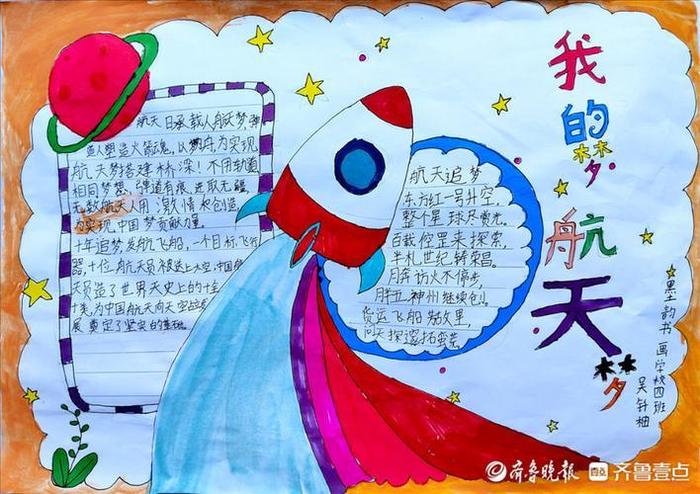 我的梦航天梦
航天日承载人航天梦,
造人塑造火箭魂,以舟为实现
航天梦搭建桥深!不用轨道
相同梦想,弹道有痕,进取无疆
无数航天人用激情来创造,
为实现中国梦贡献力量。
十年追梦发航飞船,一个目标,飞行
器,十位航天员被送上太空,中国航
天员造了世界天史上的十
十美,为中国航天向天
展奠定了坚实的基础。
航天追梦
东方红一号升空,
整个星球尽荧光,
百载倥罣来探索,
半札世纪转荣昌。
月奔访火不停步,
胖五神州继续创。
货运飞船勃故里,
问天探遥拓蛮荒
墨韵书画学校四班
吴轩柚
齐鲁晚报
壹点
齐鲁壹点